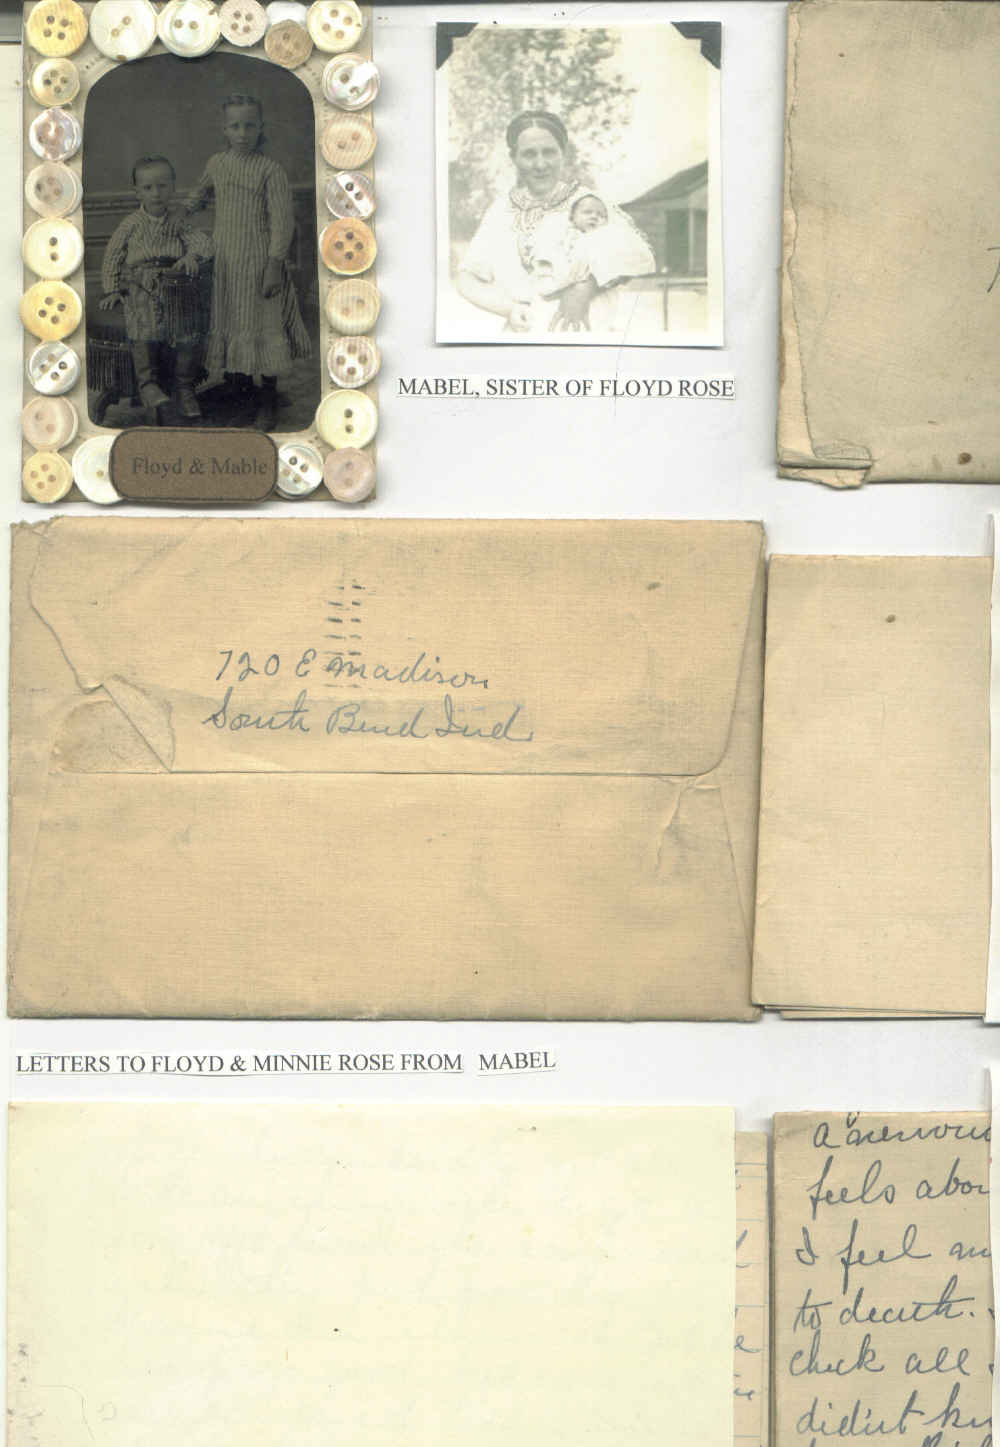 Floyd & Mable
MABEL, SISTER OF FLOYD ROSE
720 E Madison
South Bend Ind.
LETTERS TO FLOYD & MINNIE ROSE FROM MABEL
a
feels
I feel
to death.
check all
didn't